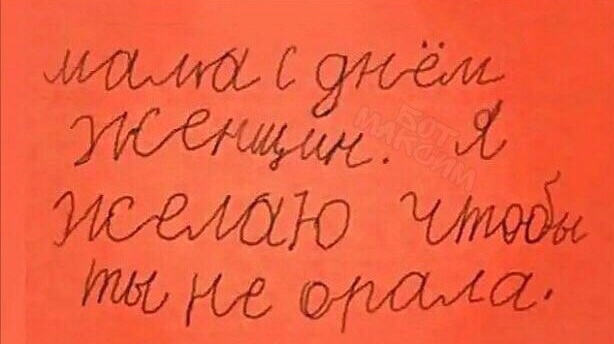 мама с днём
женщин. Я
желаю чтобы
ты не орала.
БОТ
МАКСИМ